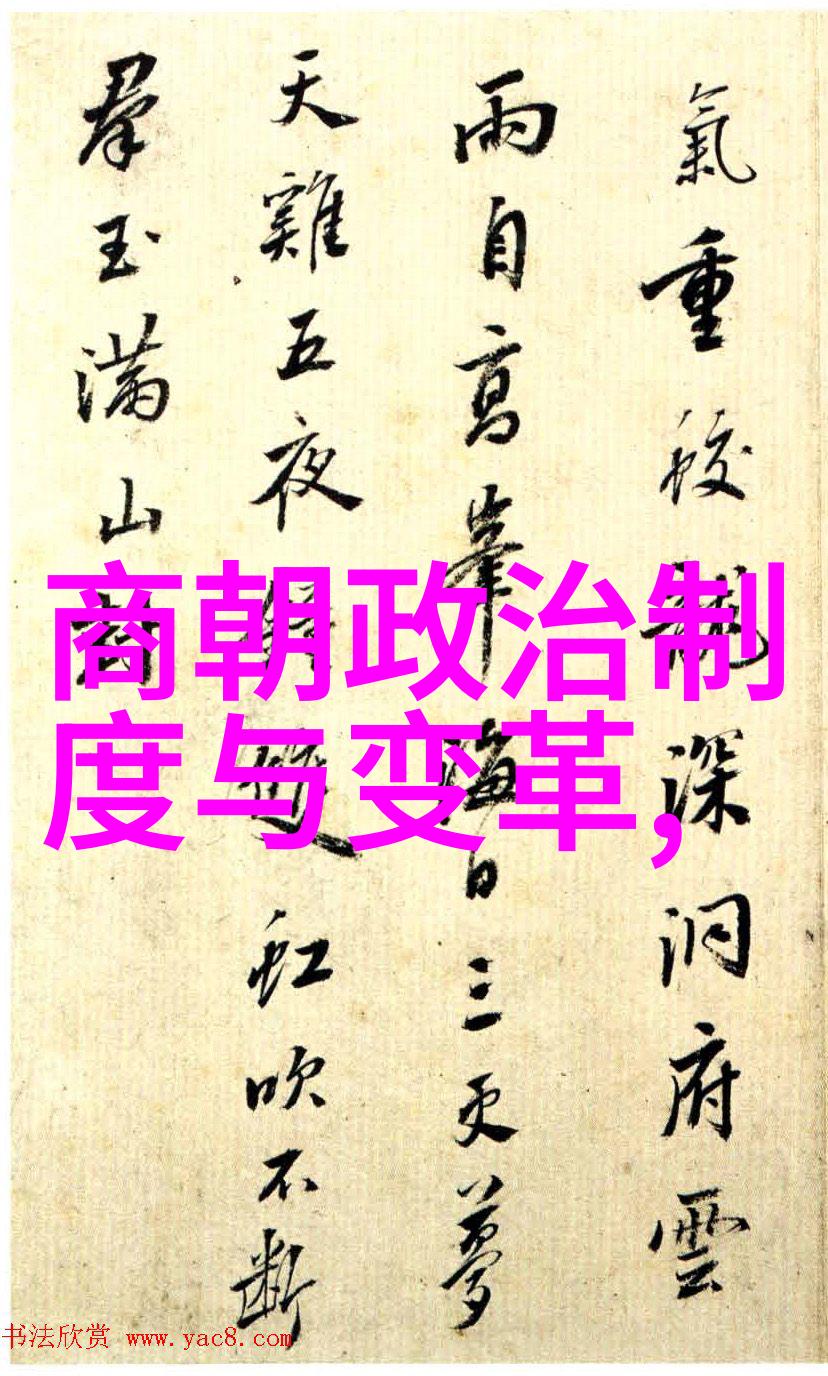 氣重蛟龍深洞府雲
雨自高峯海日三更夢
天雞五夜雙虹吹不斷
羣玉滿山
商朝政治制
度与变革,
书法欣赏 www.yac8.com